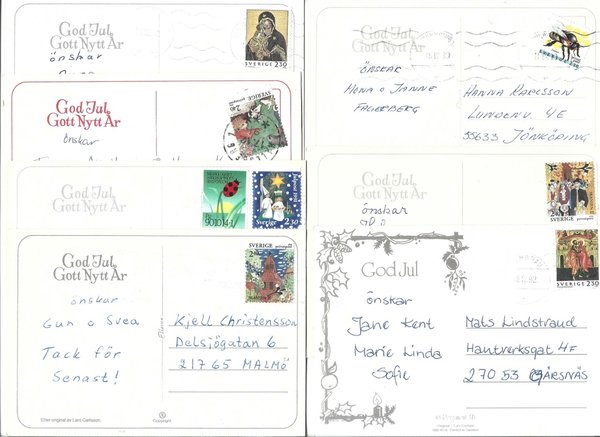 God Jul
Gott Nytt År
önskar
SVERIGE 230
God Jul
Gott Nytt År
önskar
SVERIGE
God Jul
Gott Nytt År
90104-1
Sverige
God Jul
Gott Nytt År
önskar
Gun o Svea
Tack för
Senast!
SVERIGE
Kjell Christensson
Delsjögatan 6
217 65 MALMÖ
Efter original av Lars Carlsson.
Copyright
God Jul
Gott Nytt År
ÖNSKAR
MONA O JANNE
FAGERBERG
HANNA KARLSSON
LUNDENV. 4E
55633 JÖNKÖPING
God Jul
Gott Nytt År
önskar
God Jul
önskar
Jane Kent
Marie Linda
Sofie
SVERIGE 230
Mats Lindstraud
Hantverksgat 4F
270 53 GÄRSNÄS